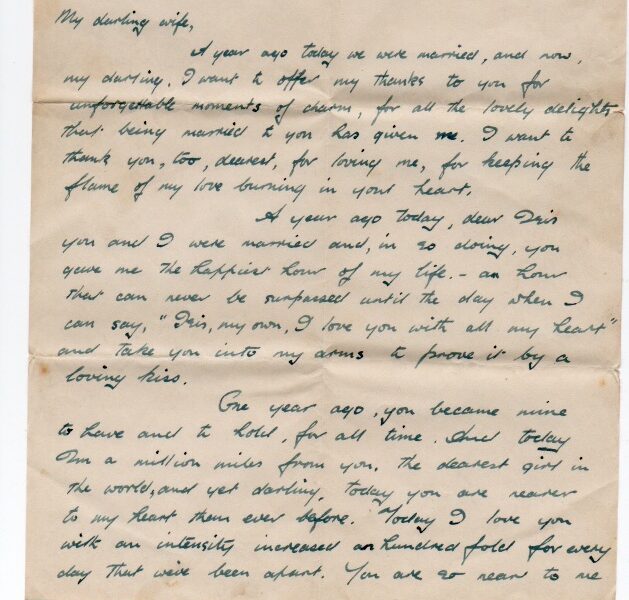 My darling wife,
A year ago today we were married, and now,
my darling, I want to offer my thanks to you for
unforgettable moments of charm, for all the lovely delights
that being married to you has given me. I want to
thank you, too, dearest, for loving me, for keeping the
flame of my love burning in your heart.
A year ago today, dear Iris
you and I were married and, in so doing, you
gave me the happiest hour of my life. - an hour
that can never be surpassed until the day when I
can say, "Iris, my own, I love you with all my heart"
and take you into my arms to prove it by a
loving kiss.
One year ago, you became mine
to have and to hold, for all time. And today
I'm a million miles from you, the dearest girl in
the world, and yet darling, today you are nearer
to my heart than ever before. Today I love you
with an intensity increased an hundred fold for every
day that we've been apart. You are so near to me